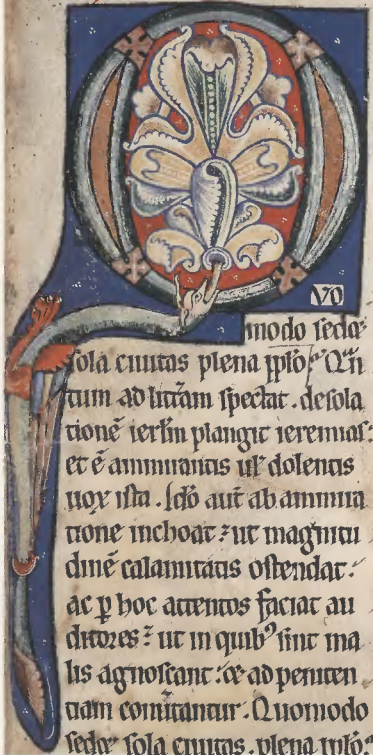 VO
modo sedet
sola ciuitas plena pplo? Qn
tum ad litt̃am spectat. desola
tionẽ ierl̃m plangit ieremias:
et ẽ ammirantis ul̃ dolentis
uox ista. Idõ aut̃ ab ammira
tione inchoat: ut magnitu
dinẽ calamitatis ostendat:
ac p̱ hoc attentos faciat au
ditores: ut in quibꝰ sint ma
lis agnoscant: & ad peniten
tiam conũtantur. Quomodo
sedet sola ciuitas. plena pplo?